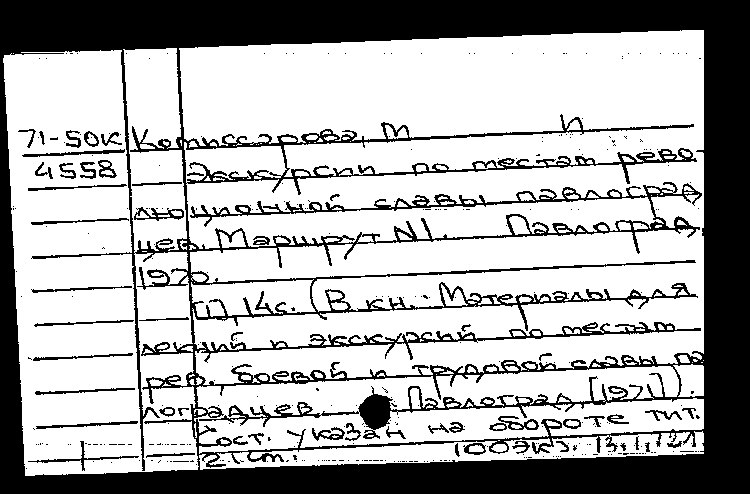 71-50К Комиссарова, М И
4558 Экскурсии по местам рево-
люционной славы павлоград-
цев. Маршрут N1. Павлоград,
1970.
[1], 14с. (В кн.: Материалы для
лекций и экскурсий по местам
рев., боевой и трудовой славы пав
лоградцев. Павлоград, [1971]).
Сост. указан на обороте тит.
100экз.